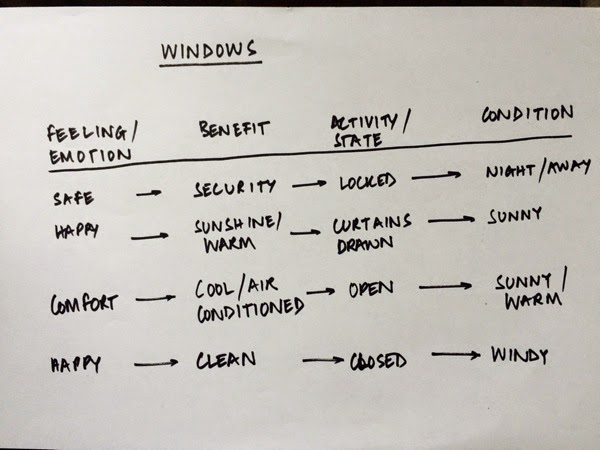 WINDOWS
FEELING/ BENEFIT ACTIVITY/ CONDITION
EMOTION STATE
SAFE → SECURITY → LOCKED → NIGHT/AWAY
HAPPY → SUNSHINE/ → CURTAINS → SUNNY
WARM DRAWN
COMFORT → COOL/AIR → OPEN → SUNNY/
CONDITIONED WARM
HAPPY → CLEAN → CLOSED → WINDY